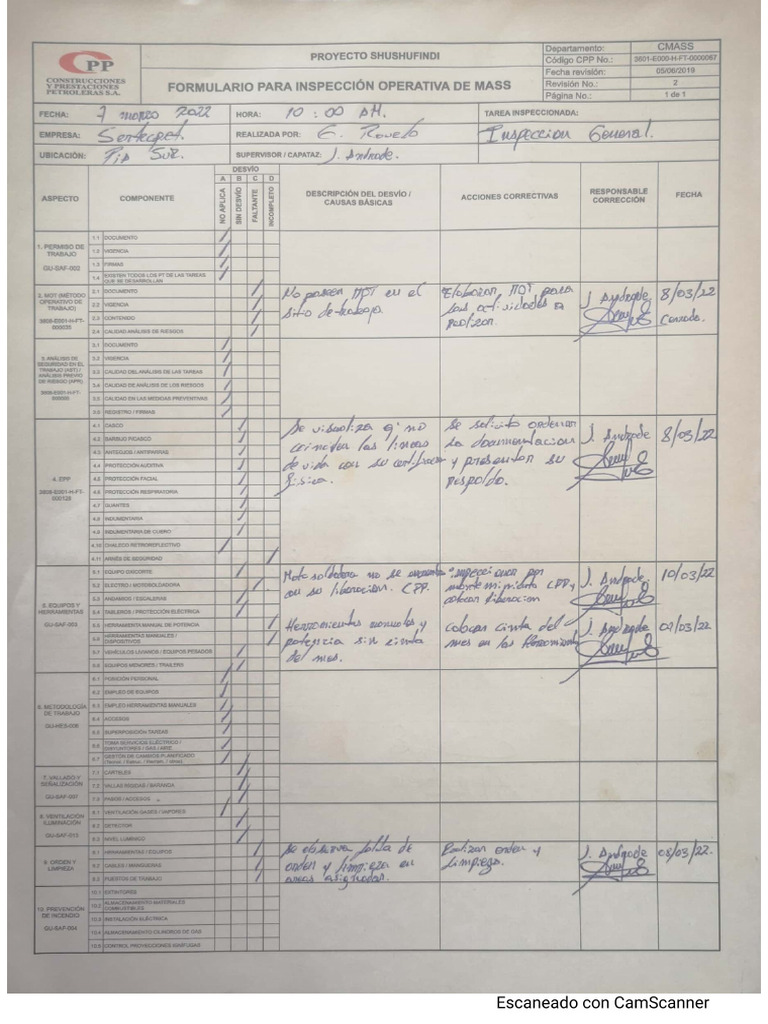 CPP
CONSTRUCCIONES
Y PRESTACIONES
PETROLERAS S.A.
PROYECTO SHUSHUFINDI
FORMULARIO PARA INSPECCIÓN OPERATIVA DE MASS
Departamento: CMASS
Código CPP No.: 3601-E000-H-FT-0000067
Fecha revisión: 05/06/2019
Revisión No.: 2
Página No.: 1 de 1
FECHA: 7 marzo 2022
HORA: 10:00 AM.
TAREA INSPECCIONADA:
EMPRESA: Sertecpet.
REALIZADA POR:
Inspeccion General.
UBICACIÓN: Sur.
SUPERVISOR / CAPATAZ: J. Andrade.
ASPECTO
COMPONENTE
DESVÍO
A B C D
NO APLICA
SIN DESVÍO
FALTANTE
INCOMPLETO
DESCRIPCIÓN DEL DESVÍO /
CAUSAS BÁSICAS
ACCIONES CORRECTIVAS
RESPONSABLE
CORRECCIÓN
FECHA
1. PERMISO DE
TRABAJO
GU-SAF-002
1.1 DOCUMENTO
1.2 VIGENCIA
1.3 FIRMAS
1.4 EXISTEN TODOS LOS PT DE LAS TAREAS
QUE SE DESARROLLAN
2. MOT (MÉTODO
OPERATIVO DE
TRABAJO)
2.1 DOCUMENTO
2.2 VIGENCIA
2.3 CONTENIDO
2.4 CALIDAD ANÁLISIS DE RIESGOS
No poseen MOT en el
sitio de trabajo.
Elaboran MOT para
las actividades a
realizar.
J. Andrade
8/03/22
Cerrado.
3. ANÁLISIS DE
SEGURIDAD EN EL
TRABAJO (AST) /
ANÁLISIS PREVIO
DE RIESGO (APR)
3.1 DOCUMENTO
3.2 VIGENCIA
3.3 CALIDAD DEL ANÁLISIS DE LAS TAREAS
3.4 CALIDAD DE ANÁLISIS DE LOS RIESGOS
3.5 CALIDAD EN LAS MEDIDAS PREVENTIVAS
3.6 REGISTRO / FIRMAS
4. EPP
3606-E001-H-FT-
000128
4.1 CASCO
4.2 BARBIJO PICASCO
4.3 ANTEOJOS / ANTIPARRAS
4.4 PROTECCIÓN AUDITIVA
4.5 PROTECCIÓN FACIAL
4.6 PROTECCIÓN RESPIRATORIA
4.7 GUANTES
4.8 INDUMENTARIA
4.9 INDUMENTARIA DE CUERO
4.10 CHALECO RETROREFLECTIVO
4.11 ARNÉS DE SEGURIDAD
Se visualiza q' no
coinciden las lineas
de vida con su certificado
fisica.
Se solicito ordenar
la documentacion
y presentar su
respaldo.
J. Andrade
8/03/22
5. EQUIPOS Y
HERRAMIENTAS
GU-SAF-003
5.1 EQUIPO OXICORTE
5.2 ELECTRO / MOTOSOLDADORA
5.3 ANDAMIOS / ESCALERAS
5.4 TABLEROS / PROTECCIÓN ELÉCTRICA
5.5 HERRAMIENTA MANUAL DE POTENCIA
5.6 HERRAMIENTAS MANUALES /
DISPOSITIVOS
5.7 VEHÍCULOS LIVIANOS / EQUIPOS PESADOS
5.8 EQUIPOS MENORES / TRAILERS
Moto soldadora no se encuentra
con su liberacion. CPP.
Inspeccionar por
mantenimiento CPP y
colocar liberacion
J. Andrade
10/03/22
Herramientas manuales y
potencia sin cinta
del mes.
Colocar cinta del
mes en las Herramientas
J. Andrade
6. METODOLOGÍA
DE TRABAJO
GU-HES-006
6.1 POSICIÓN PERSONAL
6.2 EMPLEO DE EQUIPOS
6.3 EMPLEO HERRAMIENTAS MANUALES
6.4 ACCESOS
6.5 SUPERPOSICIÓN TAREAS
6.6 TOMA SERVICIOS ELÉCTRICO /
DISYUNTORES / GAS / AIRE
6.7 GESTIÓN DE CAMBIOS PLANIFICADO
7. VALLADO Y
SEÑALIZACIÓN
GU-SAF-007
7.1 CARTELES
7.2 VALLAS RÍGIDAS / BARANDA
7.3 PASOS / ACCESOS
8. VENTILACIÓN
ILUMINACIÓN
GU-SAF-013
8.1 VENTILACIÓN GASES / VAPORES
8.2 DETECTOR
8.3 NIVEL LUMÍNICO
9. ORDEN Y
LIMPIEZA
9.1 HERRAMIENTAS / EQUIPOS
9.2 CABLES / MANGUERAS
9.3 PUESTOS DE TRABAJO
Se observa falta de
orden y limpieza en
areas asignadas.
Realizar orden y
limpieza.
J. Andrade
08/03/22.
10. PREVENCIÓN
DE INCENDIO
GU-SAF-004
10.1 EXTINTORES
10.2 ALMACENAMIENTO MATERIALES
COMBUSTIBLES
10.3 INSTALACIÓN ELÉCTRICA
10.4 ALMACENAMIENTO CILINDROS DE GAS
10.5 CONTROL PROYECCIONES IGNÍFUGAS
Escaneado con CamScanner